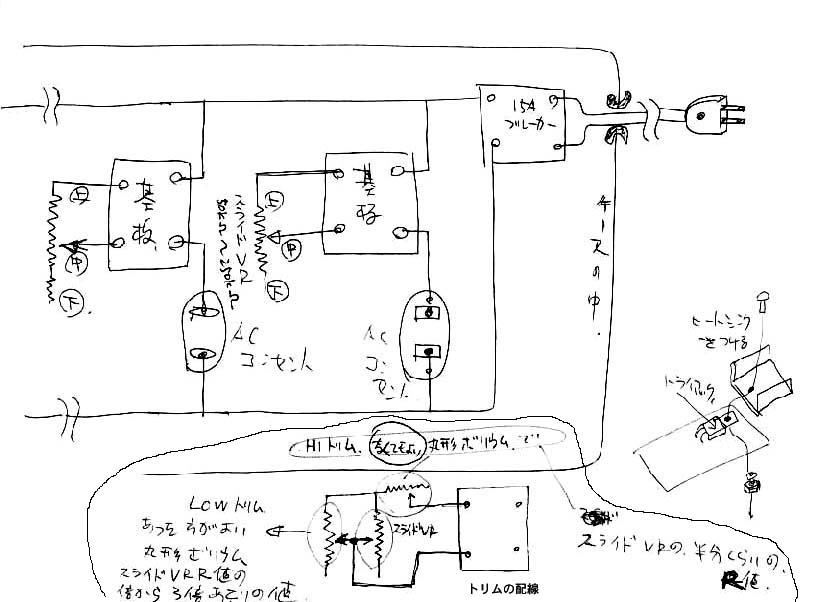 15A
ブレーカー
基
板
上
中
下
スライドVR
50kΩ～250kΩ
基
板
上
中
下
ケースの中.
AC
コンセント
AC
コン
セント
ヒートシンク
をつける
トライアック
HIトリム.
なくてもよい
丸形ボリウム.で
LOWトリム
あったほうがよい
丸形ボリウム
スライドVR R値の
倍から3倍あたりの値.
スライドVR
スライドVRの半分くらいの
R値.
トリムの配線